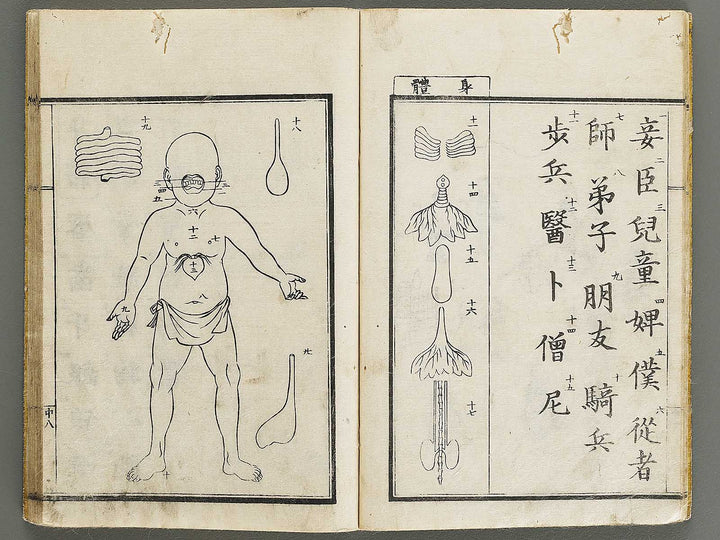 一妾二臣三兒童四婢五僕六從者
七師八弟子九朋友十騎兵
十一步兵十二醫十三卜十四僧十五尼
身體
十一
十四
十五
十六
十七
十八
十九
三
四
五
六
十二
七
十三
八
九
十
廿
中八